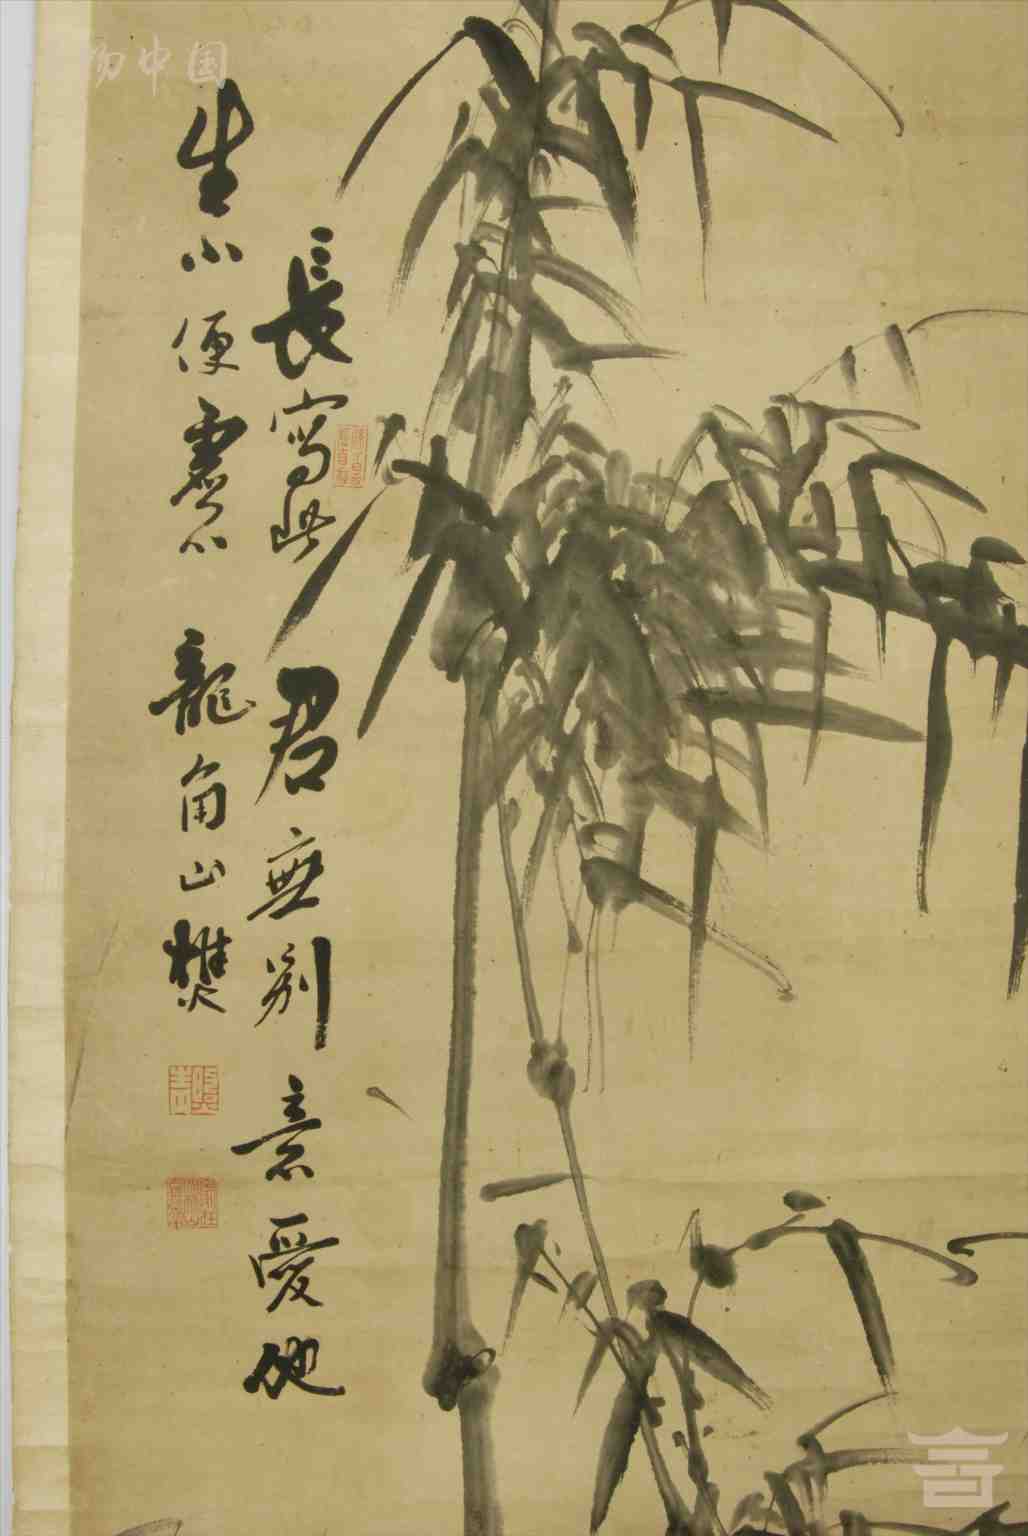 長寫此君無別意愛他
生小便虛心 龍角山樵
中国